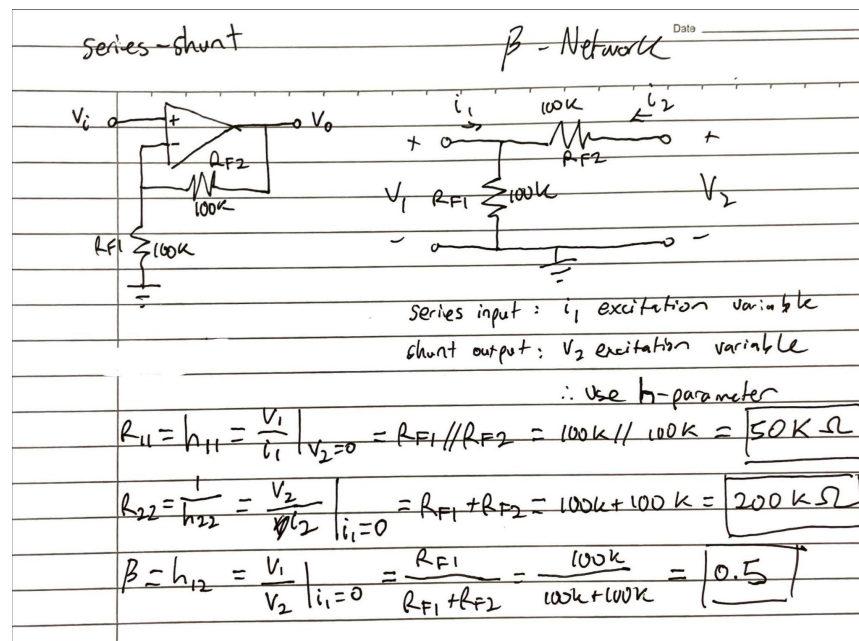 series-shunt
β - Network
Date
Vi
+
-
Vo
RF2
100K
RF1
100K
i1
100K
i2
+
RF2
+
V1
RF1
100K
V2
-
-
series input : i1 excitation variable
shunt output : V2 excitation variable
∴ use h-parameter
R11 = h11 = V1/i1 |V2=0 = RF1//RF2 = 100K//100K = 50K Ω
R22 = 1/h22 = V2/i2 |i1=0 = RF1 + RF2 = 100K + 100K = 200K Ω
β = h12 = V1/V2 |i1=0 = RF1/RF1+RF2 = 100K/100K+100K = 0.5